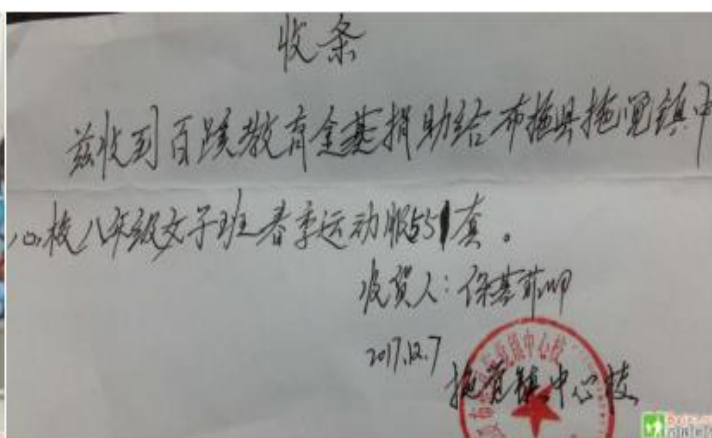 收条
兹收到百蹊教育金基捐助给布拖县拖觉镇中
心校八年级女子班春季运动服551套。
收货人：保基
2017.12.7
拖觉镇中心校
镇中心校